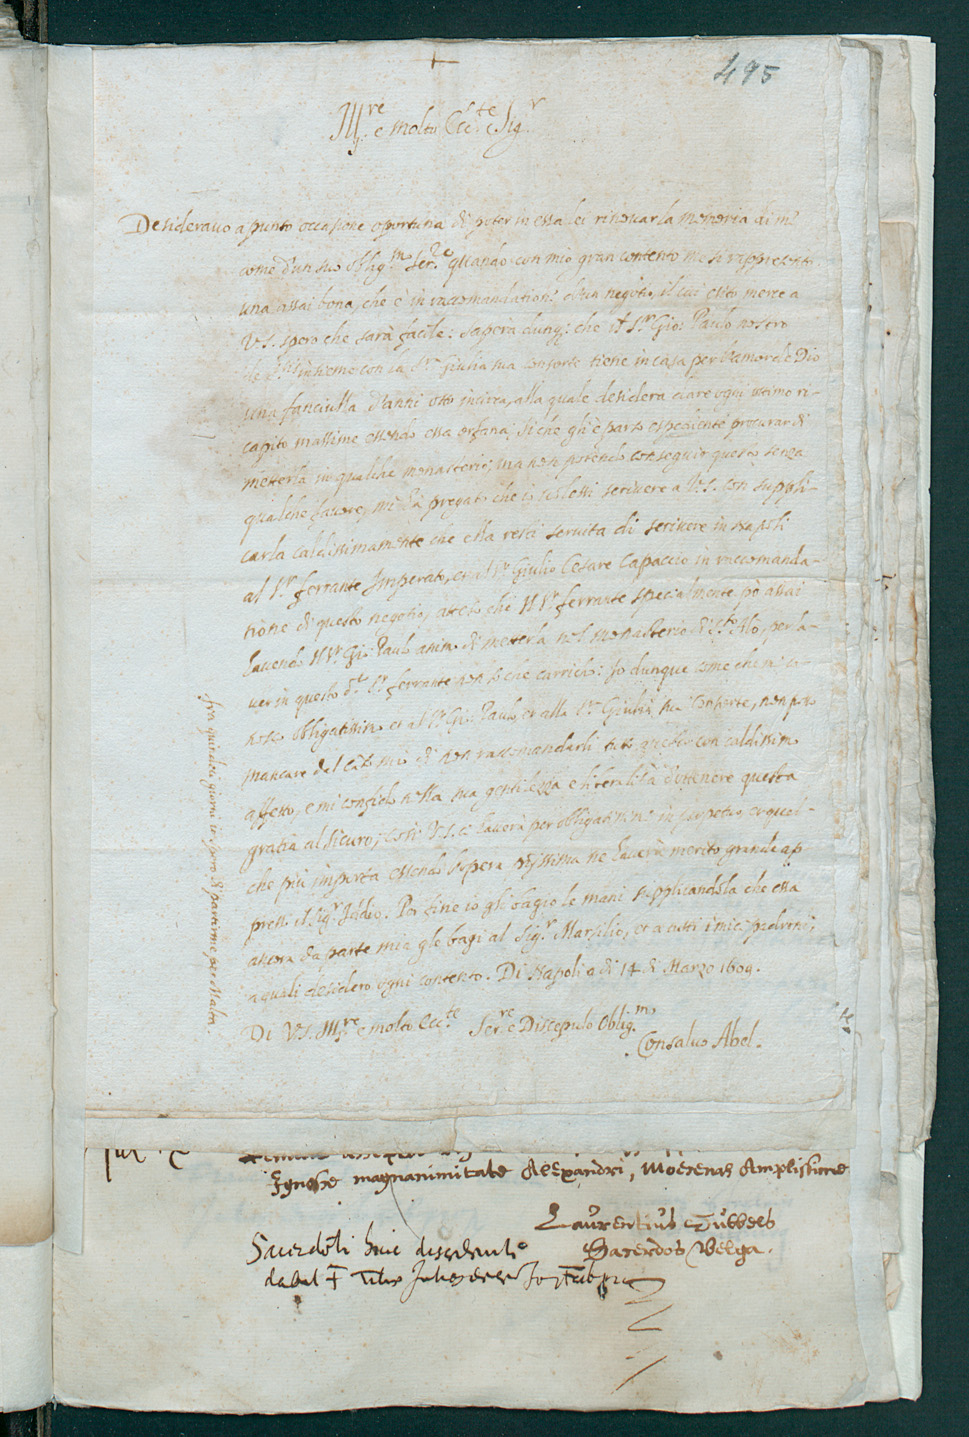 495
Ill.re e molto Ecc.te Sig.r
Desideravo apunto occasione oportuna di poter in essa lei rinovar la memoria di me
come d'un suo oblig.mo Ser.re quando con mio gran contento me si rappresentò
una assai bona, che è in raccomandation d'un negotio, il cui esito mercè a
V.S. spero che sarà facile: Saperà dunq; che il S.r Gio: Paulo nostro
insieme con la S.ra Giulia sua consorte tiene in casa per l'amor de Dio
una fanciulla d'anni otto incirca, alla quale desidera dare ogni ottimo ri-
capito massime essendo essa orfana; sì che gli è parso espediente procurar di
metterla in qualche monasterio; ma non potendo conseguir questo senza
qualche favore, mi hà pregato che io volessi scrivere a V.S. con suppli-
carla caldissimamente che essa resti servita di scrivere in Napoli
al S.r Ferrante Imperato, et al S.r Giulio Cesare Capaccio in raccomanda-
tione di questo negotio, atteso che il S.r Ferrante specialmente pò assai
havendo il S.r Gio: Paulo animo di metterla nel monasterio di S.to Alò, per ha-
ver in questo d.to S.r Ferrante non sò che carrico: Io dunque come che mi co-
nosco obligatissimo et al S.r Gio: Paulo, et alla S.ra Giulia sua consorte, non posso
mancare dal canto mio di non raccomandarli tutto questo con caldissimo
affetto, e mi confido nella sua gentilezza e liberalità d'ottenere questa
gratia al sicuro; così V.S. ci haverà per obligatissimi in perpetuo, et quel
che più importa essendo l'opera piissima ne haverà merito grande ap
presso il Sig.r Iddio. Per fine io gli bagio le mani supplicandola che essa
ancora da parte mia gle bagi al Sig.r Marsilio, et a tutti i miei padroni,
a quali desidero ogni contento. Di Napoli a di 14 di Marzo 1609.
Di V.S. Ill.re e molto Ecc.te Ser.re e Discepulo Oblig.mo
Consalvo Abel.
fra quindeci giorni io spero di partirme per Malta.
magnanimitate Alexandri, Moecenas Amplissime
Laurentius
Sacerdos Belga.
Sacerdoti huic